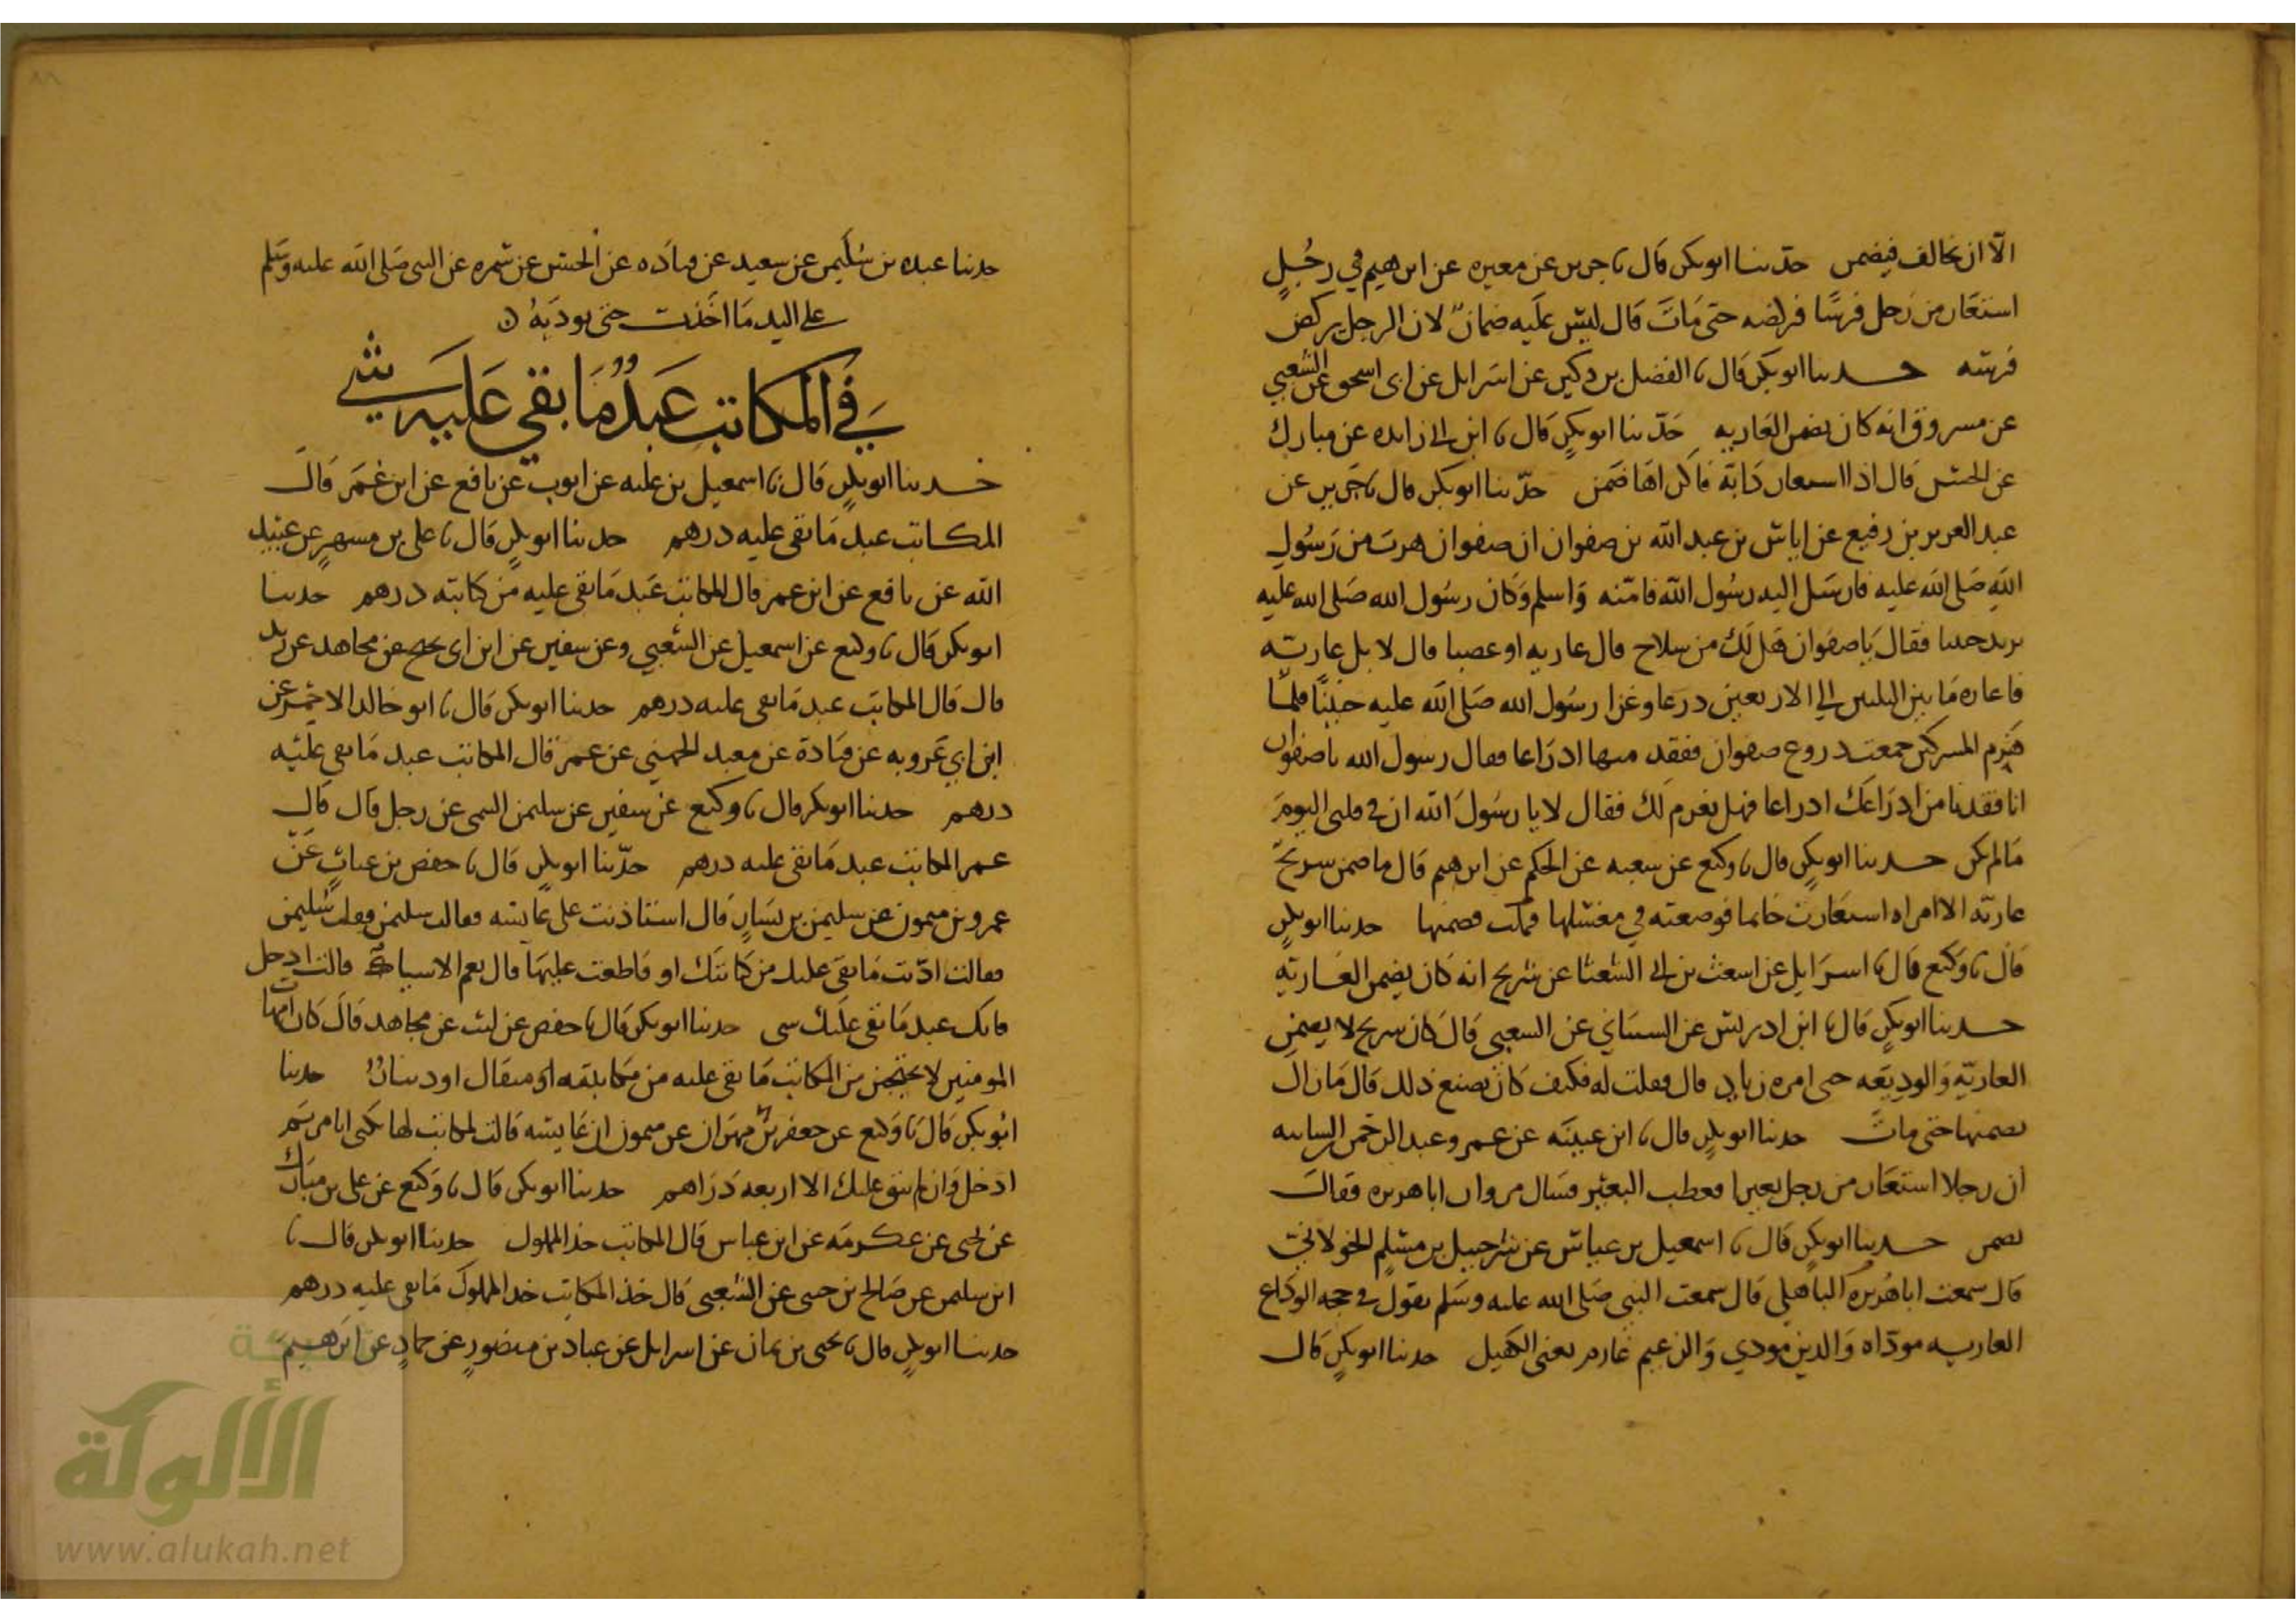 الا ان يخالف فيضمن حدثنا ابو بكر قال نا جرير عن مغيره عن ابرهيم في رجل
استعار من رجل فرسا فركضه حتى مات قال ليس عليه ضمان لان الرجل يركض
فرسه حدثنا ابو بكر قال نا الفضل بن دكين عن اسرايل عن ابي اسحق عن الشعبي
عن مسروق انه كان يضمن العاريه حدثنا ابو بكر قال نا ابن ابي زايده عن مبارك
عن الحسن قال اذا استعار دابة فاكراها ضمن حدثنا ابو بكر قال نا جرير عن
عبد العزيز بن رفيع عن اياس بن عبد الله بن صفوان ان صفوان هرب من رسول
الله صلى الله عليه فارسل اليه رسول الله فامنه واسلم وكان رسول الله صلى الله عليه
يريد حنينا فقال يا صفوان هل لك من سلاح قال عاريه او غصبا قال لا بل عاريته
فاعاره ما بين الثلثين الى الاربعين درعا وغزا رسول الله صلى الله عليه حنينا فلما
هزم المشركين جمعت دروع صفوان ففقد منها ادراعا فقال رسول الله يا صفوان
انا فقدنا من ادراعك ادراعا فهل نغرم لك فقال لا يا رسول الله ان في قلبي اليوم
ما لم يكن حدثنا ابو بكر قال نا وكيع عن شعبه عن الحكم عن ابرهيم قال ما ضمن شريح
عاريه الا امراه استعارت خاتما فوضعته في مغتسلها فضمنها حدثنا ابو بكر
قال نا وكيع قال نا اسرايل عن اشعث بن ابي الشعثا عن شريح انه كان يضمن العارية
حدثنا ابو بكر قال نا ابن ادريس عن الشيباني عن الشعبي قال كان شريح لا يضمن
العارية والوديعه حتى امره زياد قال فقلت له فكيف كان يصنع ذلك قال ما زال
يضمنها حتى مات حدثنا ابو بكر قال نا ابن عيينه عن عمرو عن عبد الرحمن بن السايب
ان رجلا استعار من رجل بعيرا فعطب البعير فسال مروان ابا هريره فقال
يضمن حدثنا ابو بكر قال نا اسمعيل بن عياش عن شرحبيل بن مسلم الخولاني
قال سمعت ابا هريره الباهلي قال سمعت النبي صلى الله عليه وسلم يقول في حجه الوداع
العاريه موداه والدين مودي والزعيم غارم يعني الكفيل حدثنا ابو بكر قال
حدثنا عبده بن سليمن عن سعيد عن قتاده عن الحسن عن سمره عن النبي صلى الله عليه وسلم
على اليد ما اخذت حتى توديه
في المكاتب عبد ما بقي عليه شي
حدثنا ابو بكر قال نا اسمعيل بن عليه عن ايوب عن نافع عن ابن عمر قال
المكاتب عبد ما بقي عليه درهم حدثنا ابو بكر قال نا علي بن مسهر عن عبيد
الله عن نافع عن ابن عمر قال المكاتب عبد ما بقي عليه من كتابته درهم حدثنا
ابو بكر قال نا وكيع عن اسمعيل عن الشعبي وعن سفين عن ابن ابي نجيح عن مجاهد عن زيد
قال قال المكاتب عبد ما بقي عليه درهم حدثنا ابو بكر قال نا ابو خالد الاحمر عن
ابن ابي عروبه عن قتادة عن معبد الجهني عن عمر قال المكاتب عبد ما بقي عليه
درهم حدثنا ابو بكر قال نا وكيع عن سفين عن سليمن التيمي عن رجل قال قال
عمر المكاتب عبد ما بقي عليه درهم حدثنا ابو بكر قال نا حفص بن غياث عن
عمرو بن ميمون عن سليمن بن يسار قال استاذنت على عايشه فقالت سليمن فقلت سليمن
فقالت اديت ما بقي عليك من كتابتك او قاطعت عليها قال نعم الا شيا قالت ادخل
فانك عبد ما بقي عليك شي حدثنا ابو بكر قال نا حفص عن ليث عن مجاهد قال كان امهات
المومنين لا يحتجبن من المكاتب ما بقي عليه من مكاتبته مثقال او دينار حدثنا
ابو بكر قال نا وكيع عن جعفر بن مهران عن ميمون ان عايشه قالت لمكاتب لها يكنى ابا مريم
ادخل وان لم يبق عليك الا اربعه دراهم حدثنا ابو بكر قال نا وكيع عن علي بن مبارك
عن يحيى عن عكرمه عن ابن عباس قال المكاتب حد المملوك حدثنا ابو بكر قال نا
ابن سليمن عن صالح بن حيي عن الشعبي قال حد المكاتب حد المملوك ما بقي عليه درهم
حدثنا ابو بكر قال نا يحيى بن يمان عن اسرايل عن عباد بن منصور عن حماد عن ابرهيم
الألوكة
www.alukah.net